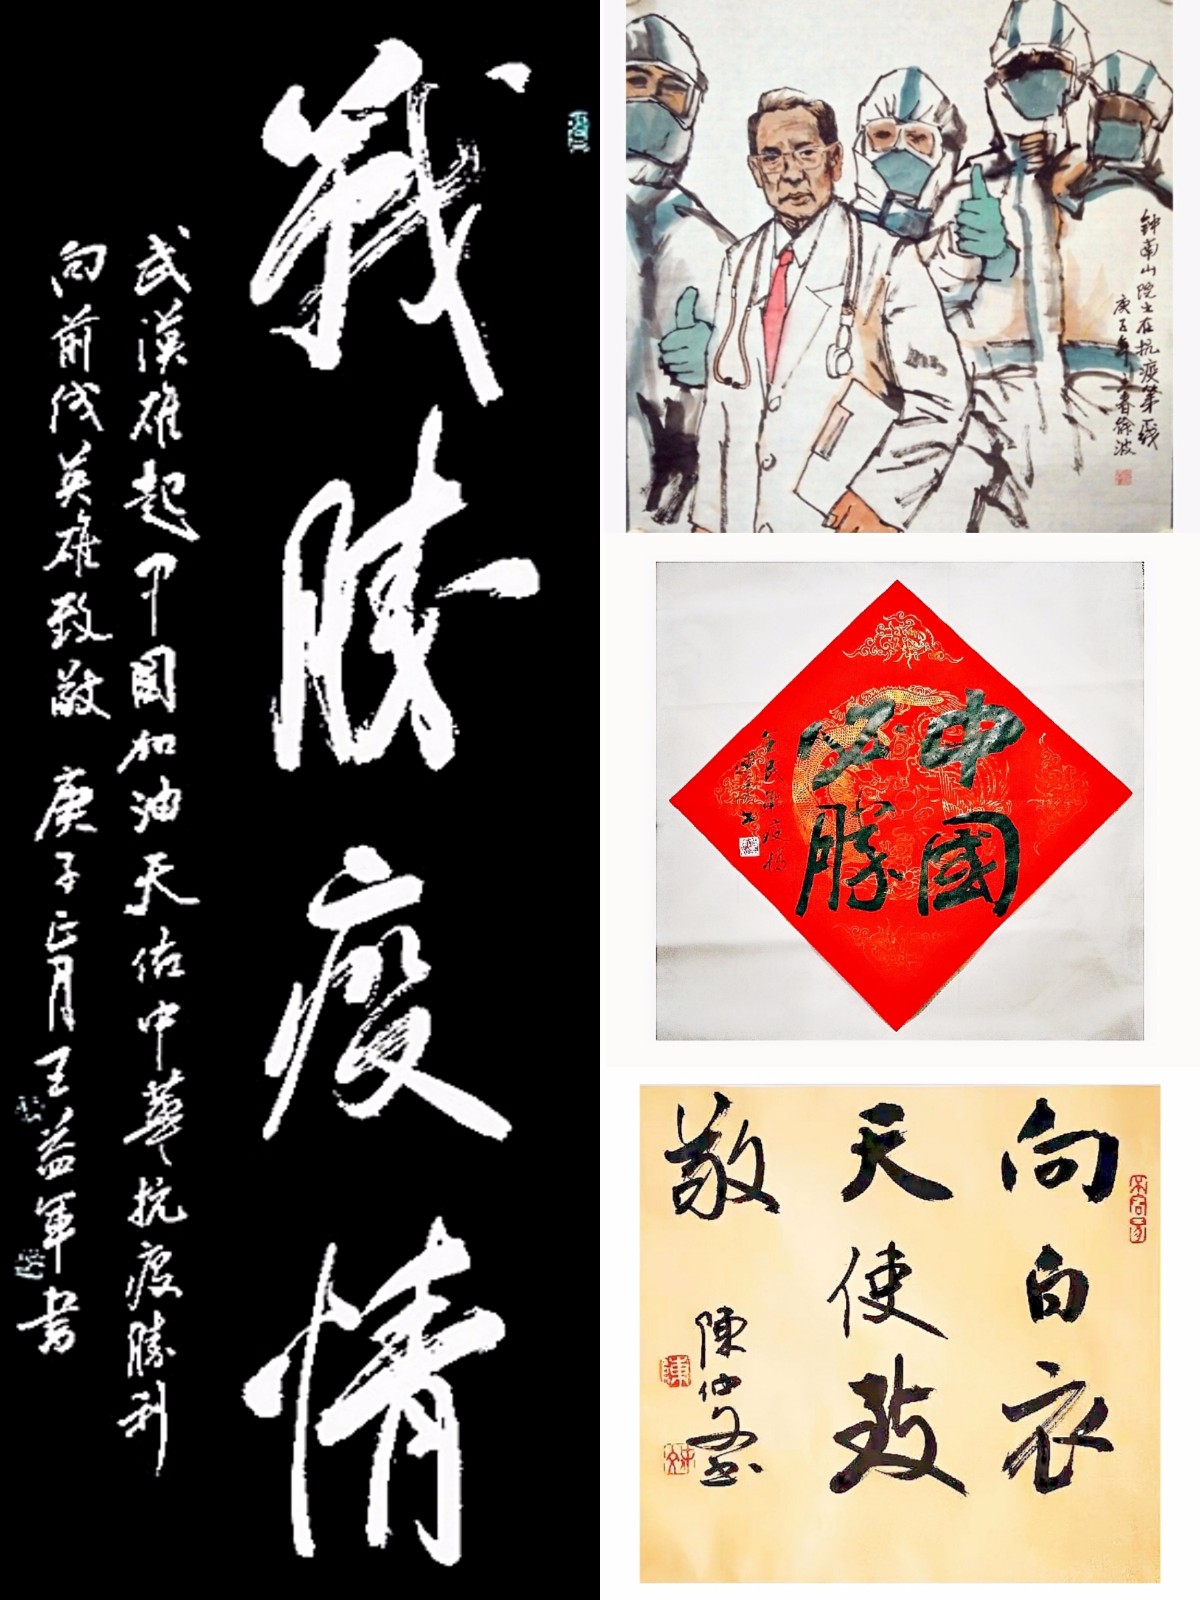 戰勝疫情
武漢雄起中國加油天佑中華抗疫勝利
向前线英雄致敬 庚子正月王益軍书
钟南山院士在抗疫第一线
庚子年之春徐波
中國
必勝
向白衣
天使致
敬
陳仲文书